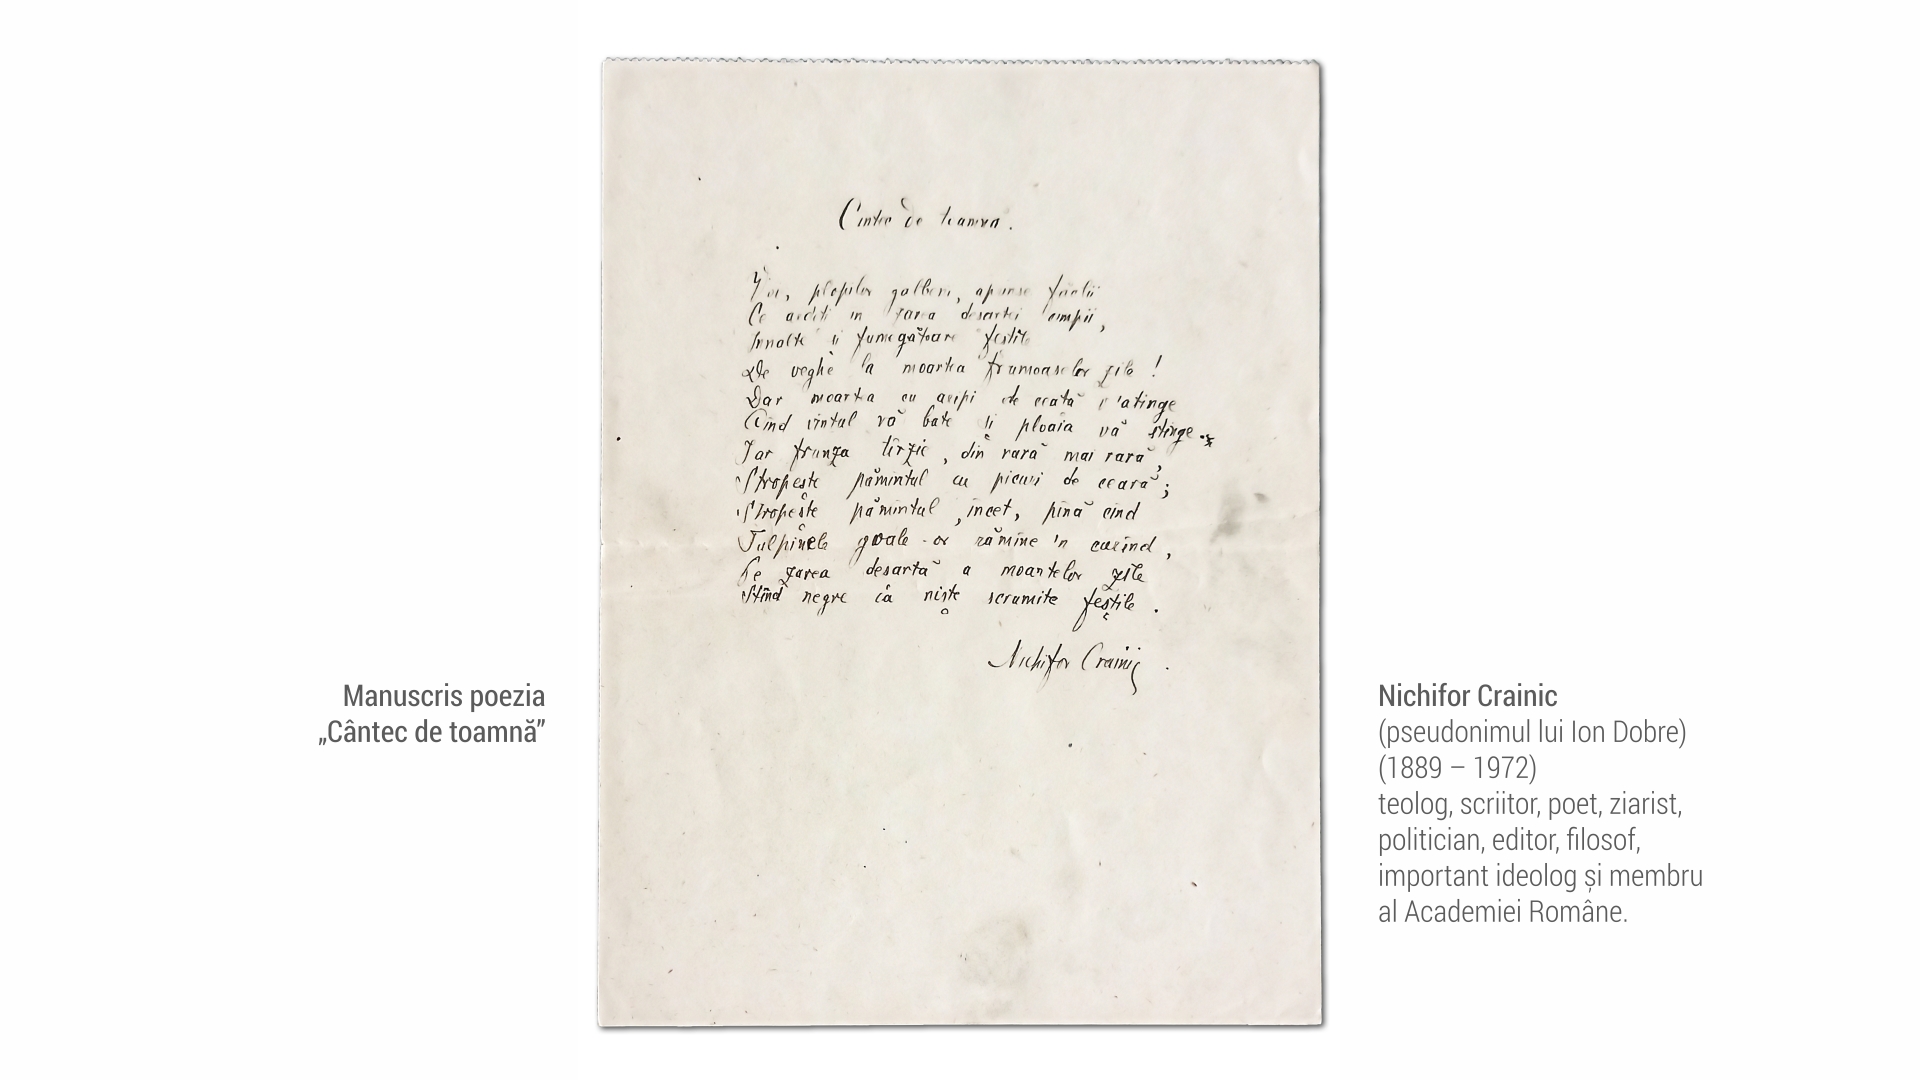 Cîntec de toamnă.
Voi, plopilor galbeni, apuse făclii
Ce ardeți în zarea deșartei cîmpii,
Innalte și fumegătoare feștile
De veghe la moartea frumoaselor zile!
Dar moartea cu aripi de ceață v'atinge
Cînd vîntul vă bate și ploaia vă stinge.
Iar frunza tîrzie, din rară mai rară,
Stropește pămîntul cu picuri de ceară;
Stropește pămîntul, încet, pînă cînd
Tulpinele goale-or rămîne 'n curînd,
Pe zarea deșartă a moartelor zile
Stînd negre ca niște scrumite feștile.
Nichifor Crainic
Manuscris poezia
„Cântec de toamnă”
Nichifor Crainic
(pseudonimul lui Ion Dobre)
(1889 – 1972)
teolog, scriitor, poet, ziarist,
politician, editor, filosof,
important ideolog și membru
al Academiei Române.